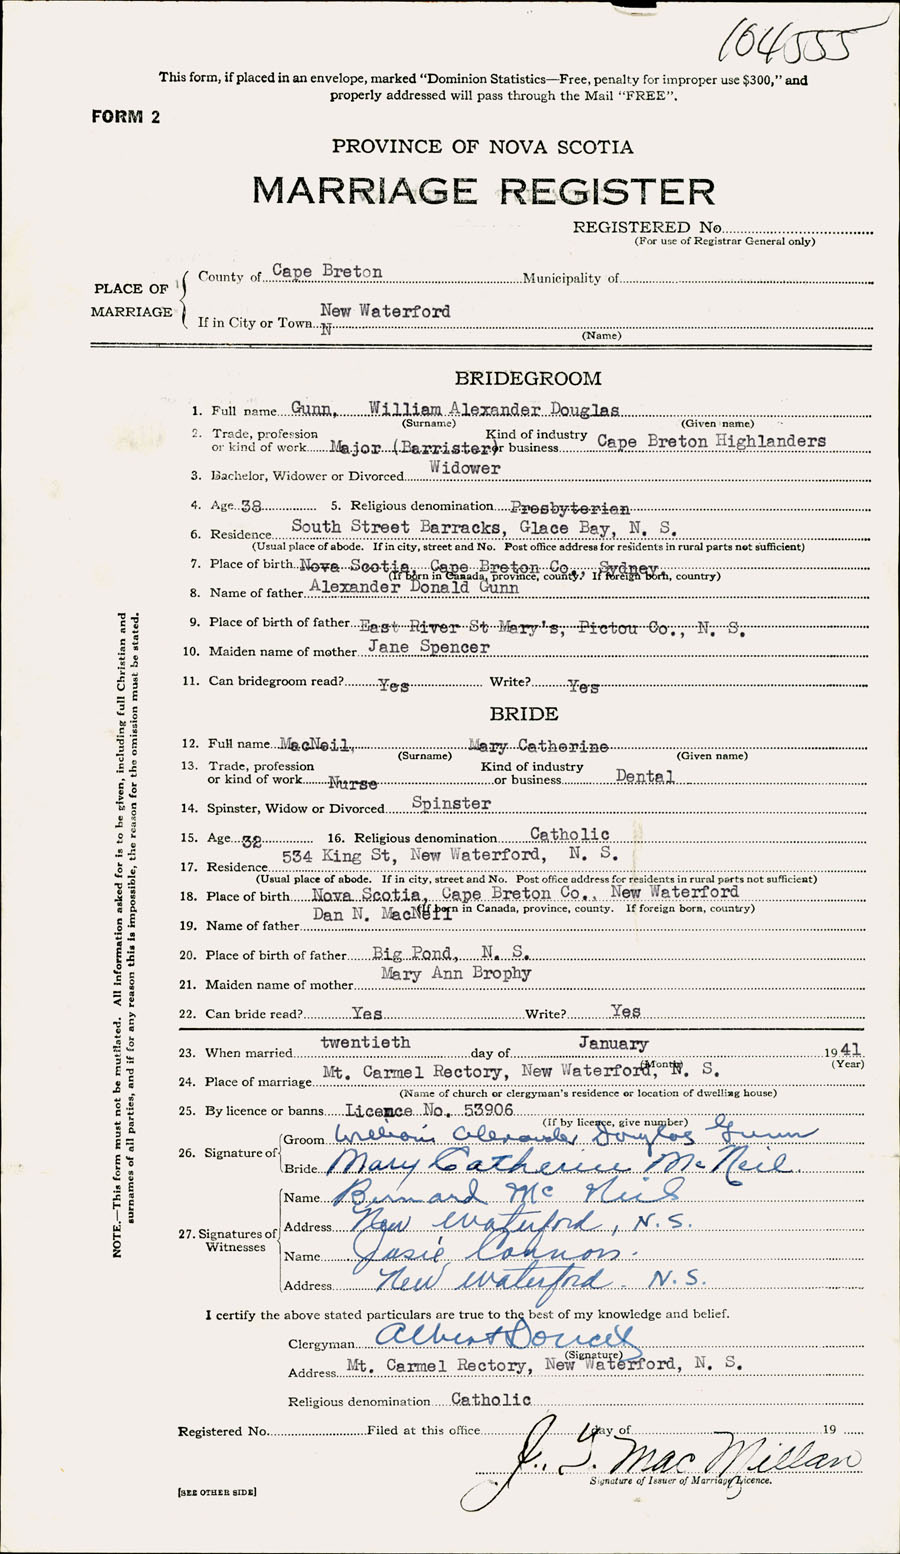 104555
This form, if placed in an envelope, marked “Dominion Statistics—Free, penalty for improper use $300,” and
properly addressed will pass through the Mail “FREE”.
FORM 2
PROVINCE OF NOVA SCOTIA
MARRIAGE REGISTER
REGISTERED No.
(For use of Registrar General only)
PLACE OF MARRIAGE
County of Cape Breton Municipality of
If in City or Town New Waterford
N
(Name)
BRIDEGROOM
1. Full name Gunn, William Alexander Douglas
(Surname) (Given name)
2. Trade, profession or kind of work Major (Barrister) Kind of industry or business Cape Breton Highlanders
3. Bachelor, Widower or Divorced Widower
4. Age 38 5. Religious denomination Presbyterian
6. Residence South Street Barracks, Glace Bay, N. S.
(Usual place of abode. If in city, street and No. Post office address for residents in rural parts not sufficient)
7. Place of birth Nova Scotia, Cape Breton Co., Sydney,
(If born in Canada, province, county. If foreign born, country)
8. Name of father Alexander Donald Gunn
9. Place of birth of father East River St Mary's, Pictou Co., N. S.
10. Maiden name of mother Jane Spencer
11. Can bridegroom read? Yes Write? Yes
BRIDE
12. Full name MacNeil, Mary Catherine
(Surname) (Given name)
13. Trade, profession or kind of work Nurse Kind of industry or business Dental
14. Spinster, Widow or Divorced Spinster
15. Age 32 16. Religious denomination Catholic
17. Residence 534 King St, New Waterford, N. S.
(Usual place of abode. If in city, street and No. Post office address for residents in rural parts not sufficient)
18. Place of birth Nova Scotia, Cape Breton Co., New Waterford
(If born in Canada, province, county. If foreign born, country)
19. Name of father Dan N. MacNeil
20. Place of birth of father Big Pond, N. S.
21. Maiden name of mother Mary Ann Brophy
22. Can bride read? Yes Write? Yes
23. When married twentieth day of January 1941
(Month) (Year)
24. Place of marriage Mt. Carmel Rectory, New Waterford, N. S.
(Name of church or clergyman's residence or location of dwelling house)
25. By licence or banns Licence No. 53906
(If by licence, give number)
26. Signature of
Groom William Alexander Douglas Gunn
Bride Mary Catherine McNeil.
27. Signatures of Witnesses
Name Bernard McNeil
Address New Waterford, N.S.
Name Josie Connors.
Address New Waterford. N.S.
I certify the above stated particulars are true to the best of my knowledge and belief.
Clergyman Albert
(Signature)
Address Mt. Carmel Rectory, New Waterford, N. S.
Religious denomination Catholic
Registered No. Filed at this office day of 19
J. G. MacMillan
Signature of Issuer of Marriage Licence.
[SEE OTHER SIDE]
NOTE.—This form must not be mutilated. All information asked for is to be given, including full Christian and
surnames of all parties, and if for any reason this is impossible, the reason for the omission must be stated.